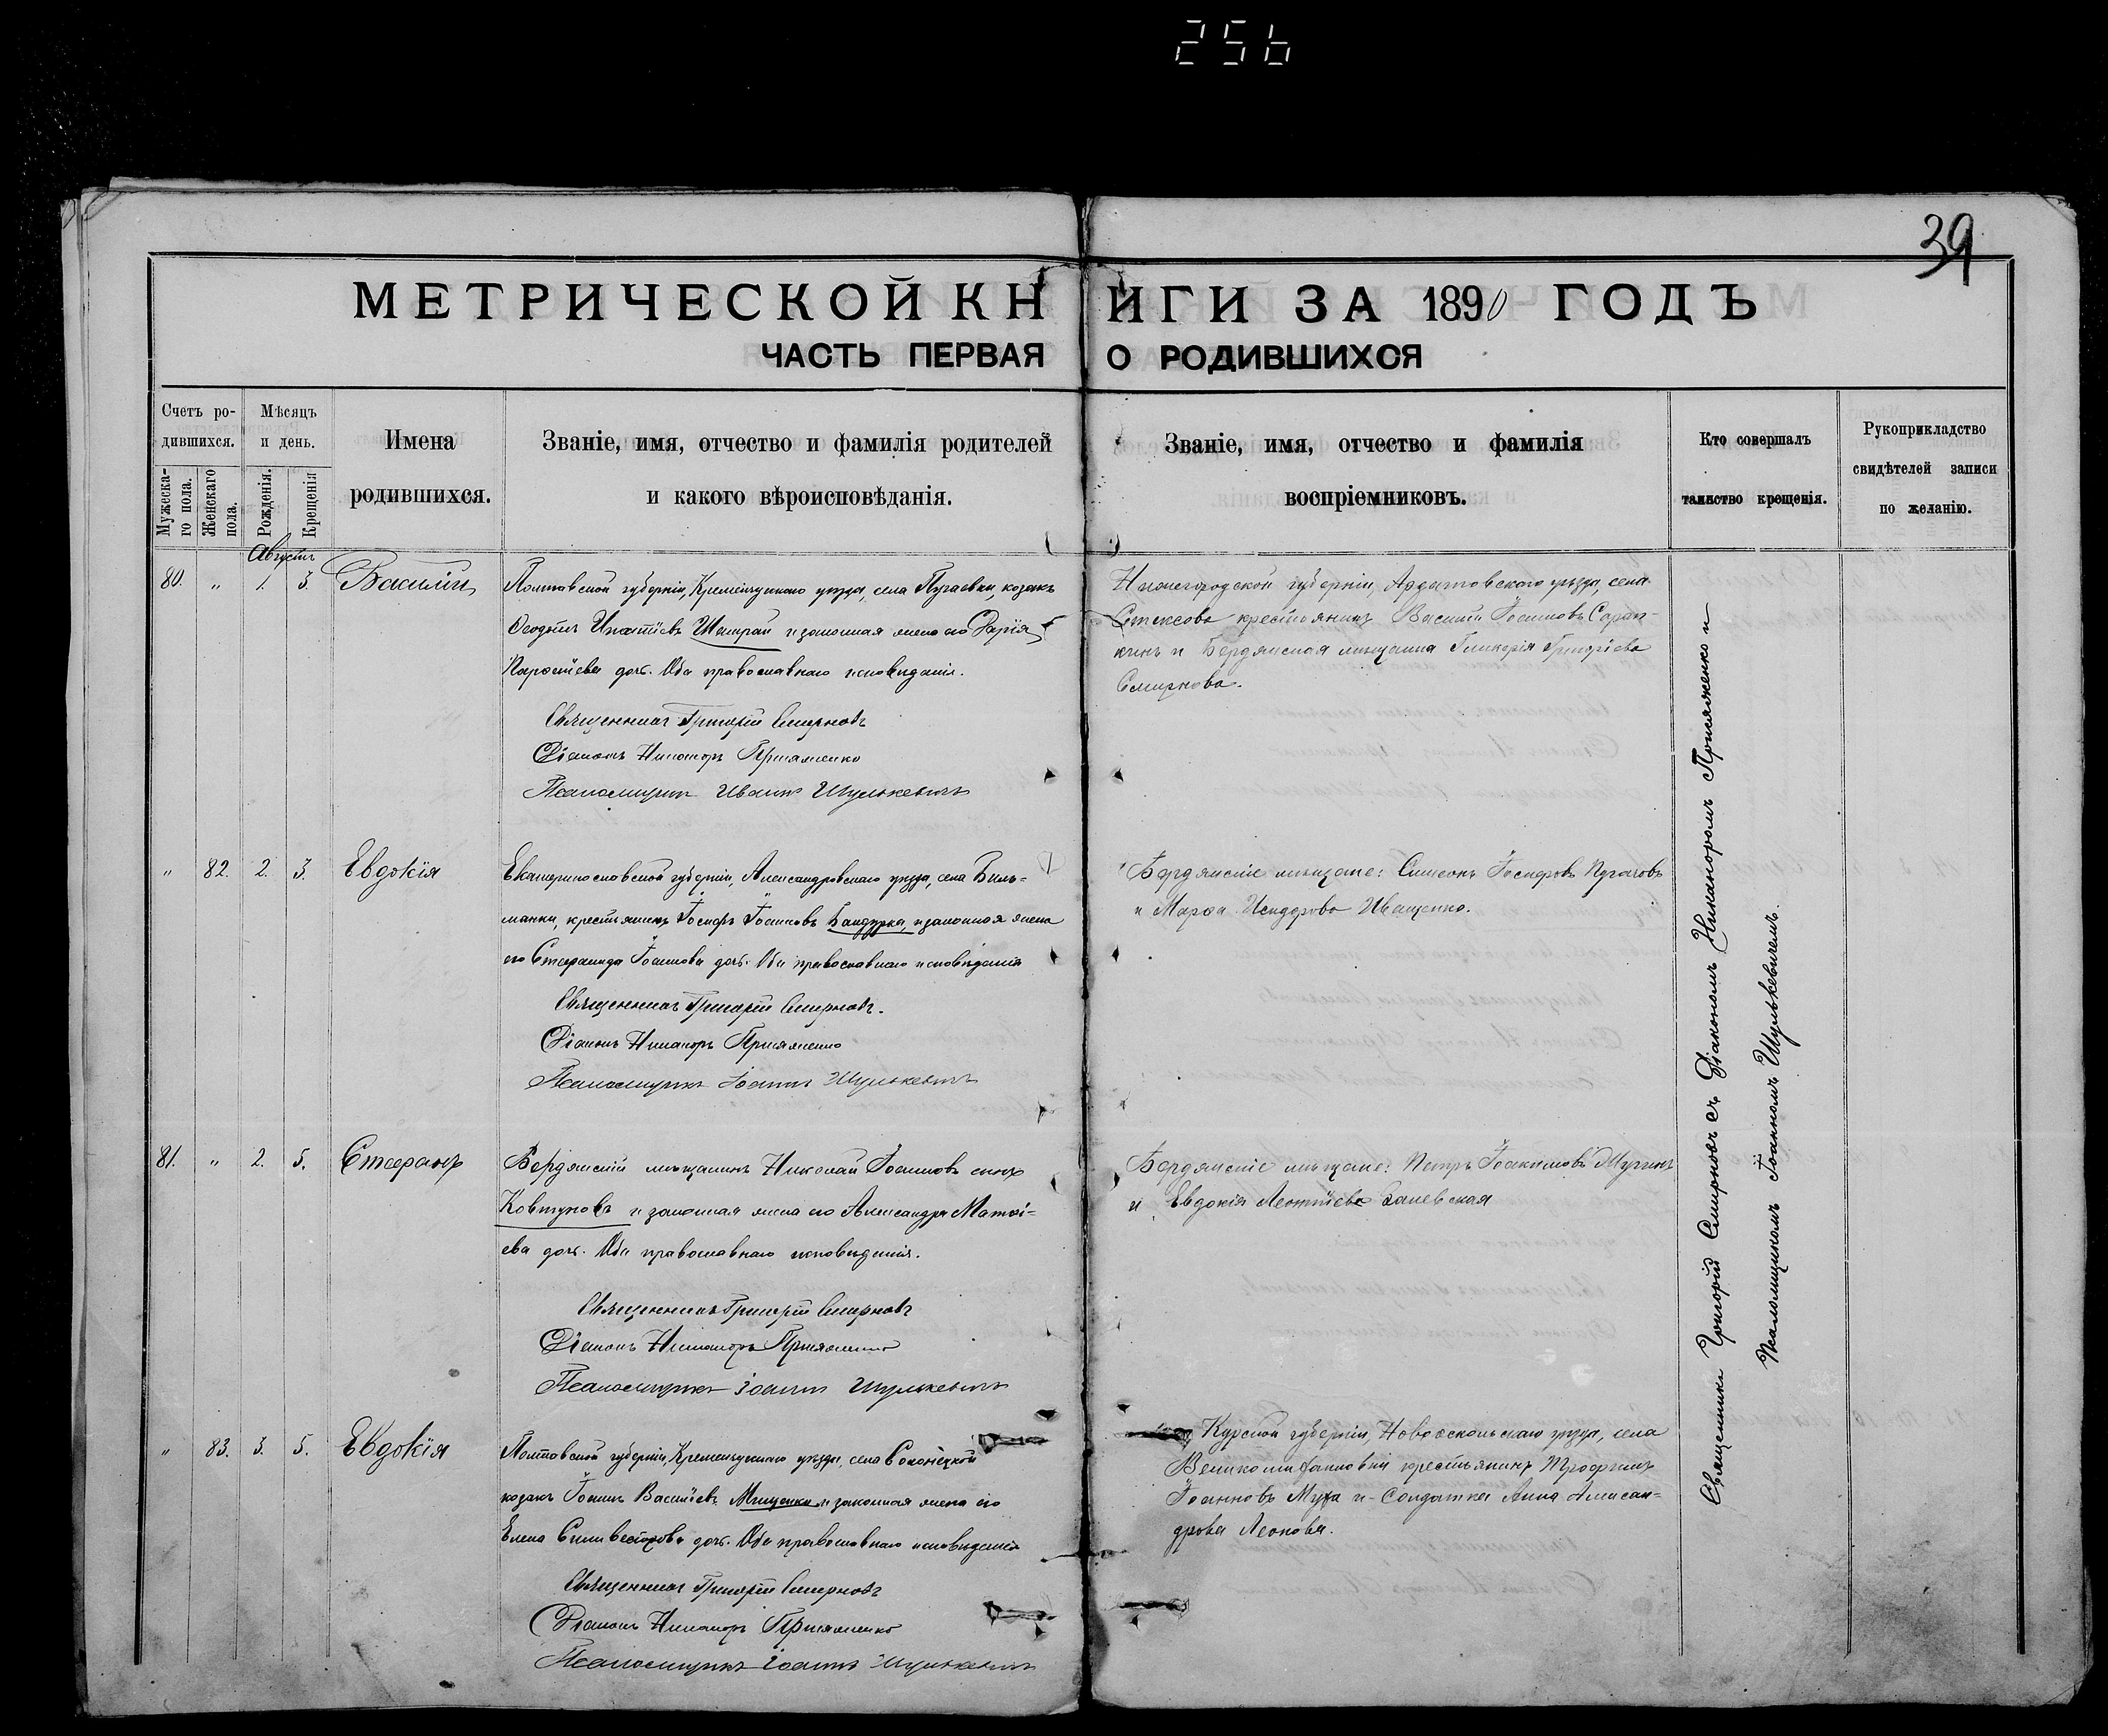 256
39
МЕТРИЧЕСКОЙ КНИГИ ЗА 1890 ГОДЪ
ЧАСТЬ ПЕРВАЯ О РОДИВШИХСЯ
Счетъ ро-
дившихся.
Мужеска-
го пола.
Женскаго
пола.
Мѣсяцъ
и день.
Рожденія.
Крещенія
Имена
родившихся.
Званіе, имя, отчество и фамилія родителей
и какого вѣроисповѣданія.
Званіе, имя, отчество и фамилія
воспріемниковъ.
Кто совершалъ
таинство крещенія.
Рукоприкладство
свидѣтелей записи
по желанію.
Августъ
80. " 1. 3. Василій
Полтавской губерніи, Кременчугскаго уѣзда, села Пугаевки, козакъ
Ѳеодотъ Игнатіевъ Шамрай и законная жена его Дарія
дочь. Оба православнаго исповѣданія.
Священникъ Григорій Смирновъ
Діаконъ Никаноръ Присяженко
Псаломщикъ Иванъ Шулькевичъ
Нижегородской губерніи, Ардатовскаго уѣзда, села
Стексова крестьянинъ Василій Іоанновъ Сорат-
кинъ и Бердянская мѣщанка Гликерія Григоріева
Смирнова.
" 82. 2. 3. Евдокія
Екатеринославской губерніи, Александровскаго уѣзда, села Биль-
манки, крестьянинъ Іосифъ Іоанновъ Бандурка, и законная жена
его Стефанида Іоаннова дочь. Оба православнаго исповѣданія
Священникъ Григорій Смирновъ.
Діаконъ Никаноръ Присяженко
Псаломщикъ Іоаннъ Шулькевичъ
Бердянскіе мѣщане: Симеонъ Іосифовъ Пугачовъ
и Марѳа Исидорова Иващенко.
81. " 2. 5. Стефанъ
Бердянскій мѣщанинъ Николай Іоанновъ сынъ
Ковтуновъ и законная жена его Александра Матѳі-
ева дочь. Оба православнаго исповѣданія.
Священникъ Григорій Смирновъ
Діаконъ Никаноръ Присяженко
Псаломщикъ Іоаннъ Шулькевичъ
Бердянскіе мѣщане: Петръ Іоакимовъ Мугинъ
и Евдокія Леонтіева Залевская
" 83. 3. 5. Евдокія
Полтавской губерніи, Кременчугскаго уѣзда, села
козакъ Іоаннъ Василіевъ Мищенко и законная жена его
Елена Сильвестрова дочь. Оба православнаго исповѣданія
Священникъ Григорій Смирновъ
Діаконъ Никаноръ Присяженко
Псаломщикъ Іоаннъ Шулькевичъ
Курской губерніи, Новооскольскаго уѣзда, села
Великомихайловки крестьянинъ Трофимъ
Іоанновъ Муха и Солдатка Анна Алексан-
дрова Леонова.
Священникъ Григорій Смирновъ съ Діакономъ Никаноромъ Присяженко и
Псаломщикомъ Іоанномъ Шулькевичемъ.